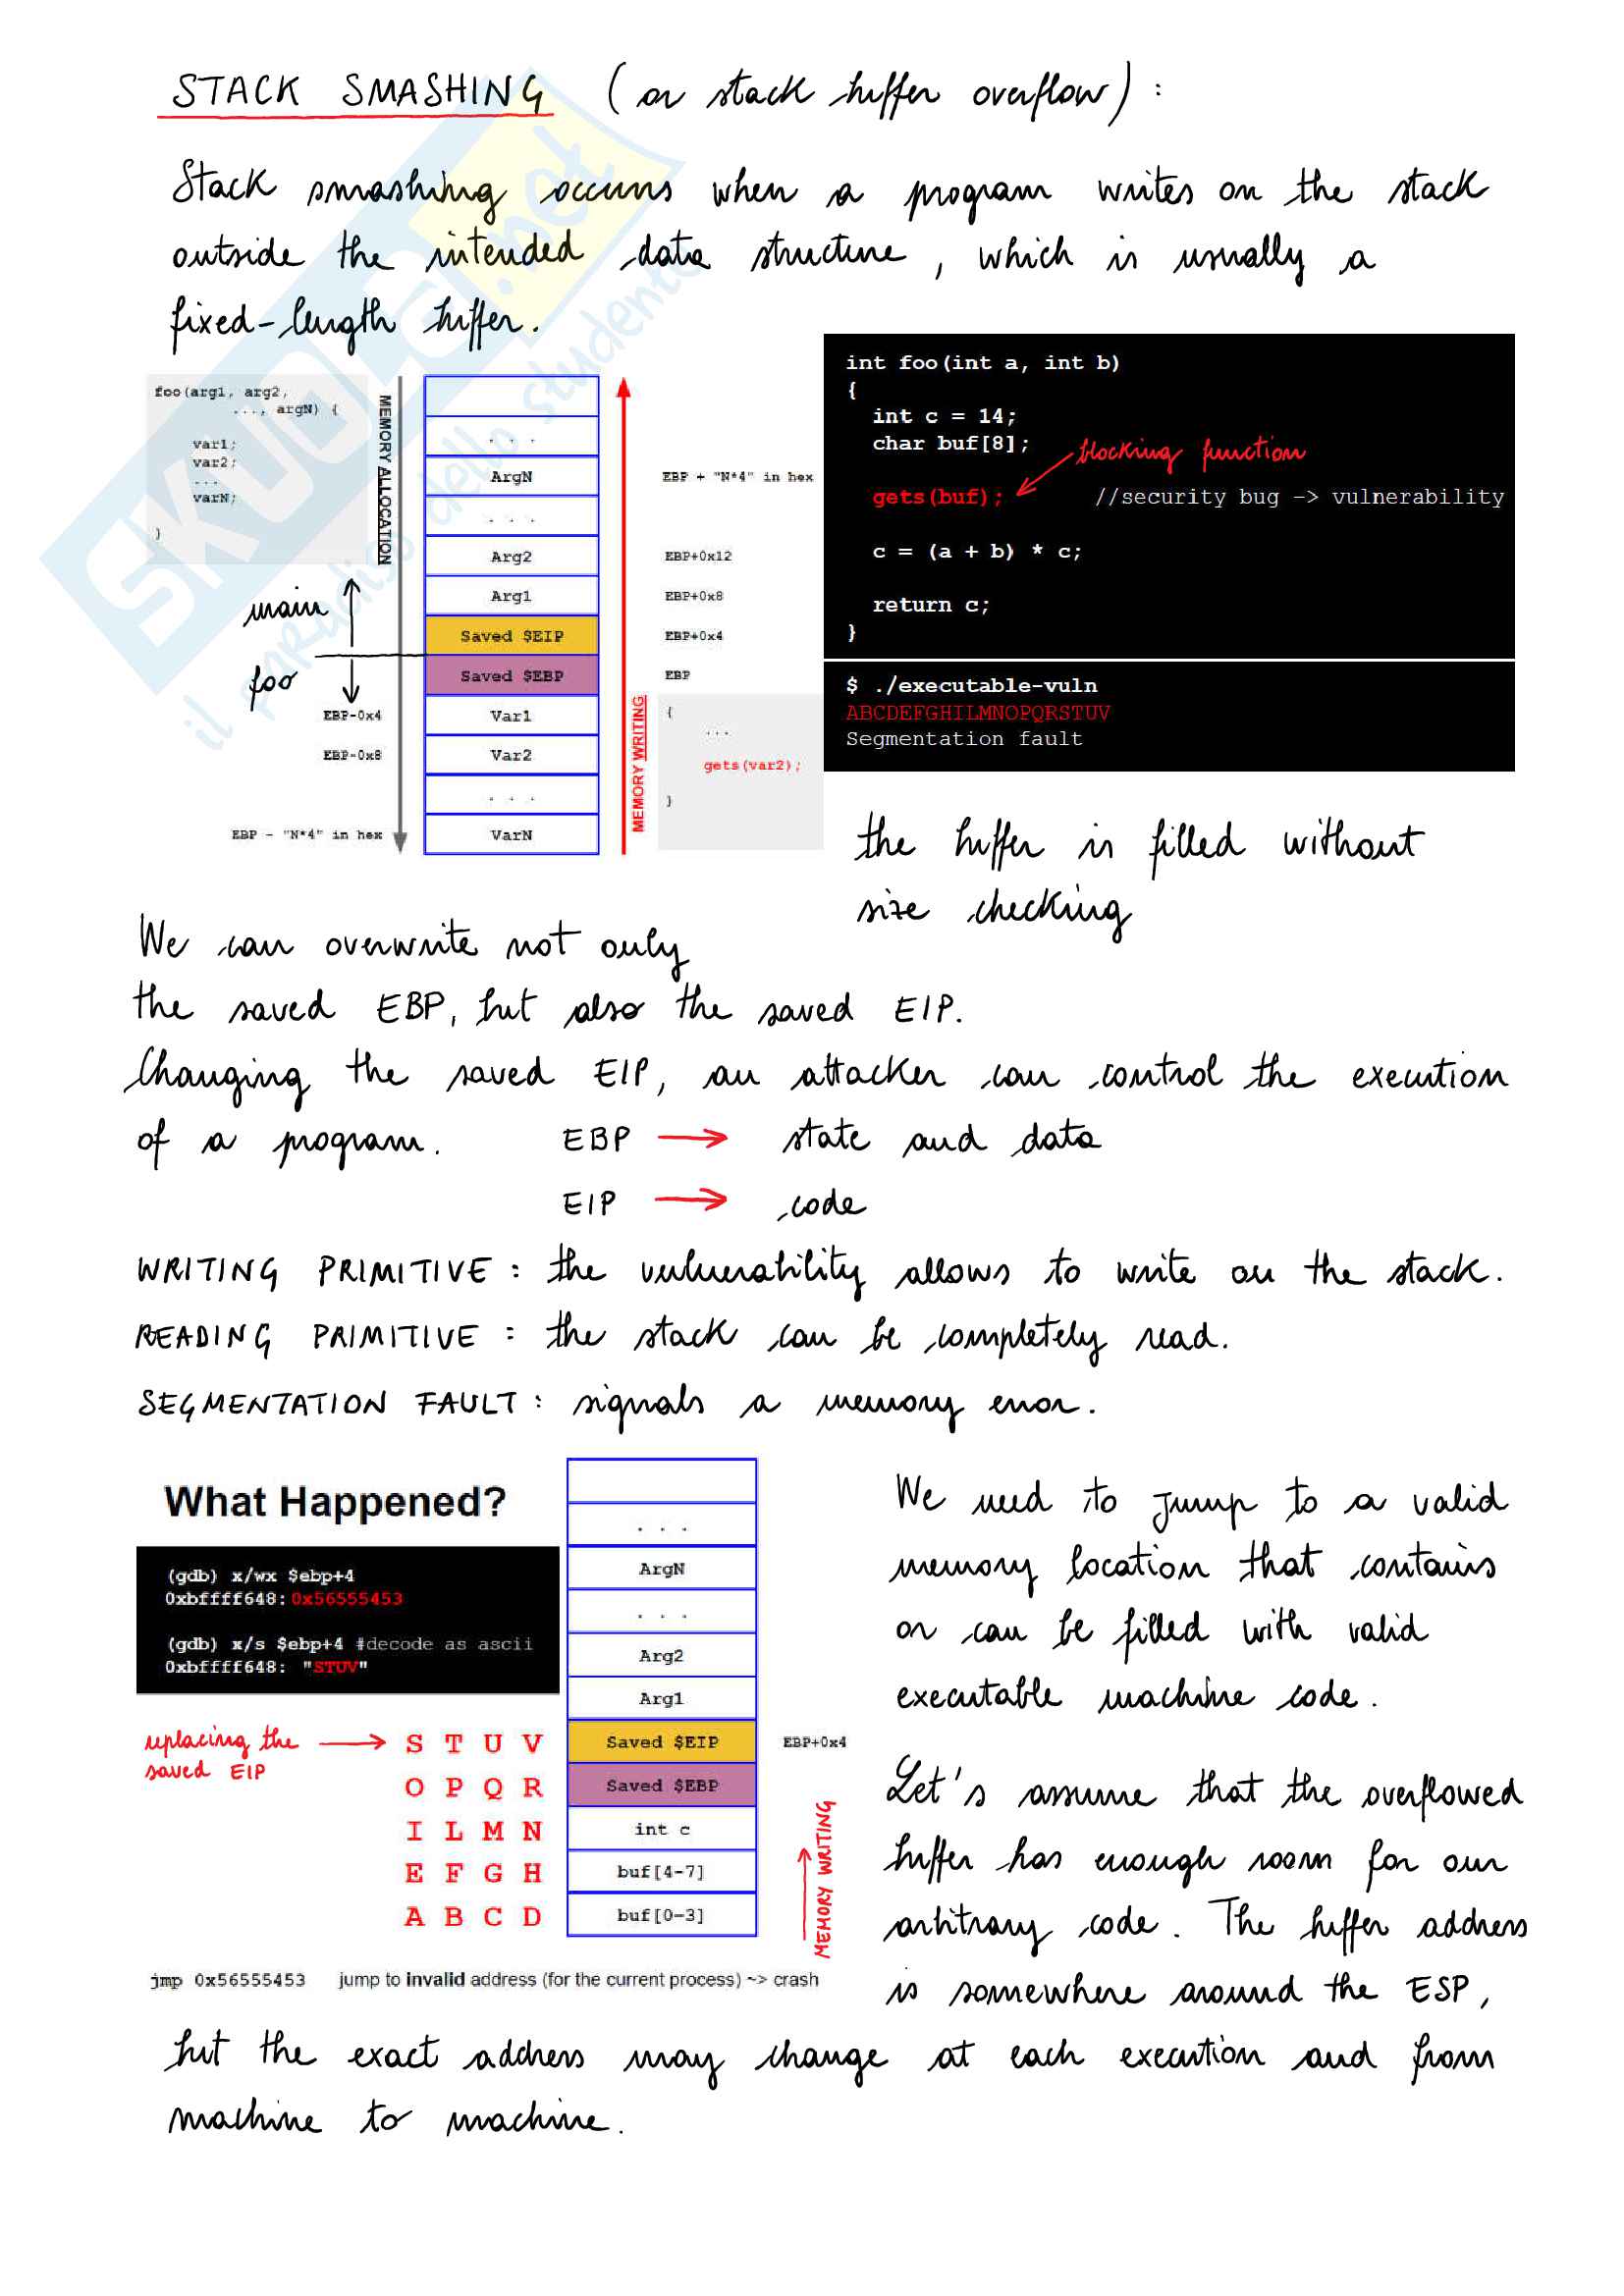 STACK SMASHING (or stack buffer overflow) :
Stack smashing occurs when a program writes on the stack
outside the intended data structure, which is usually a
fixed-length buffer.
foo(arg1, arg2,
..., argN) {
var1;
var2;
...
varN;
}
MEMORY ALLOCATION
main
foo
EBP-0x4
EBP-0x8
EBP - "N*4" in hex
. . .
ArgN
. . .
Arg2
Arg1
Saved $EIP
Saved $EBP
Var1
Var2
. . .
VarN
MEMORY WRITING
EBP + "N*4" in hex
EBP+0x12
EBP+0x8
EBP+0x4
EBP
{
...
gets(var2);
}
int foo(int a, int b)
{
int c = 14;
char buf[8];
blocking function
gets(buf); //security bug -> vulnerability
c = (a + b) * c;
return c;
}
$ ./executable-vuln
ABCDEFGHILMNOPQRSTUV
Segmentation fault
the buffer is filled without
size checking
We can overwrite not only
the saved EBP, but also the saved EIP.
Changing the saved EIP, an attacker can control the execution
of a program. EBP → state and data
EIP → code
WRITING PRIMITIVE : the vulnerability allows to write on the stack.
READING PRIMITIVE : the stack can be completely read.
SEGMENTATION FAULT : signals a memory error.
What Happened?
(gdb) x/wx $ebp+4
0xbffff648: 0x56555453
(gdb) x/s $ebp+4 #decode as ascii
0xbffff648: "STUV"
replacing the
saved EIP
→ S T U V
O P Q R
I L M N
E F G H
A B C D
. . .
ArgN
. . .
Arg2
Arg1
Saved $EIP
Saved $EBP
int c
buf[4-7]
buf[0-3]
EBP+0x4
MEMORY WRITING
jmp 0x56555453 jump to invalid address (for the current process) ~> crash
We need to jump to a valid
memory location that contains
or can be filled with valid
executable machine code.
Let's assume that the overflowed
buffer has enough room for our
arbitrary code. The buffer address
is somewhere around the ESP,
but the exact address may change at each execution and from
machine to machine.
SKUOLA.net
il paradiso dello studente